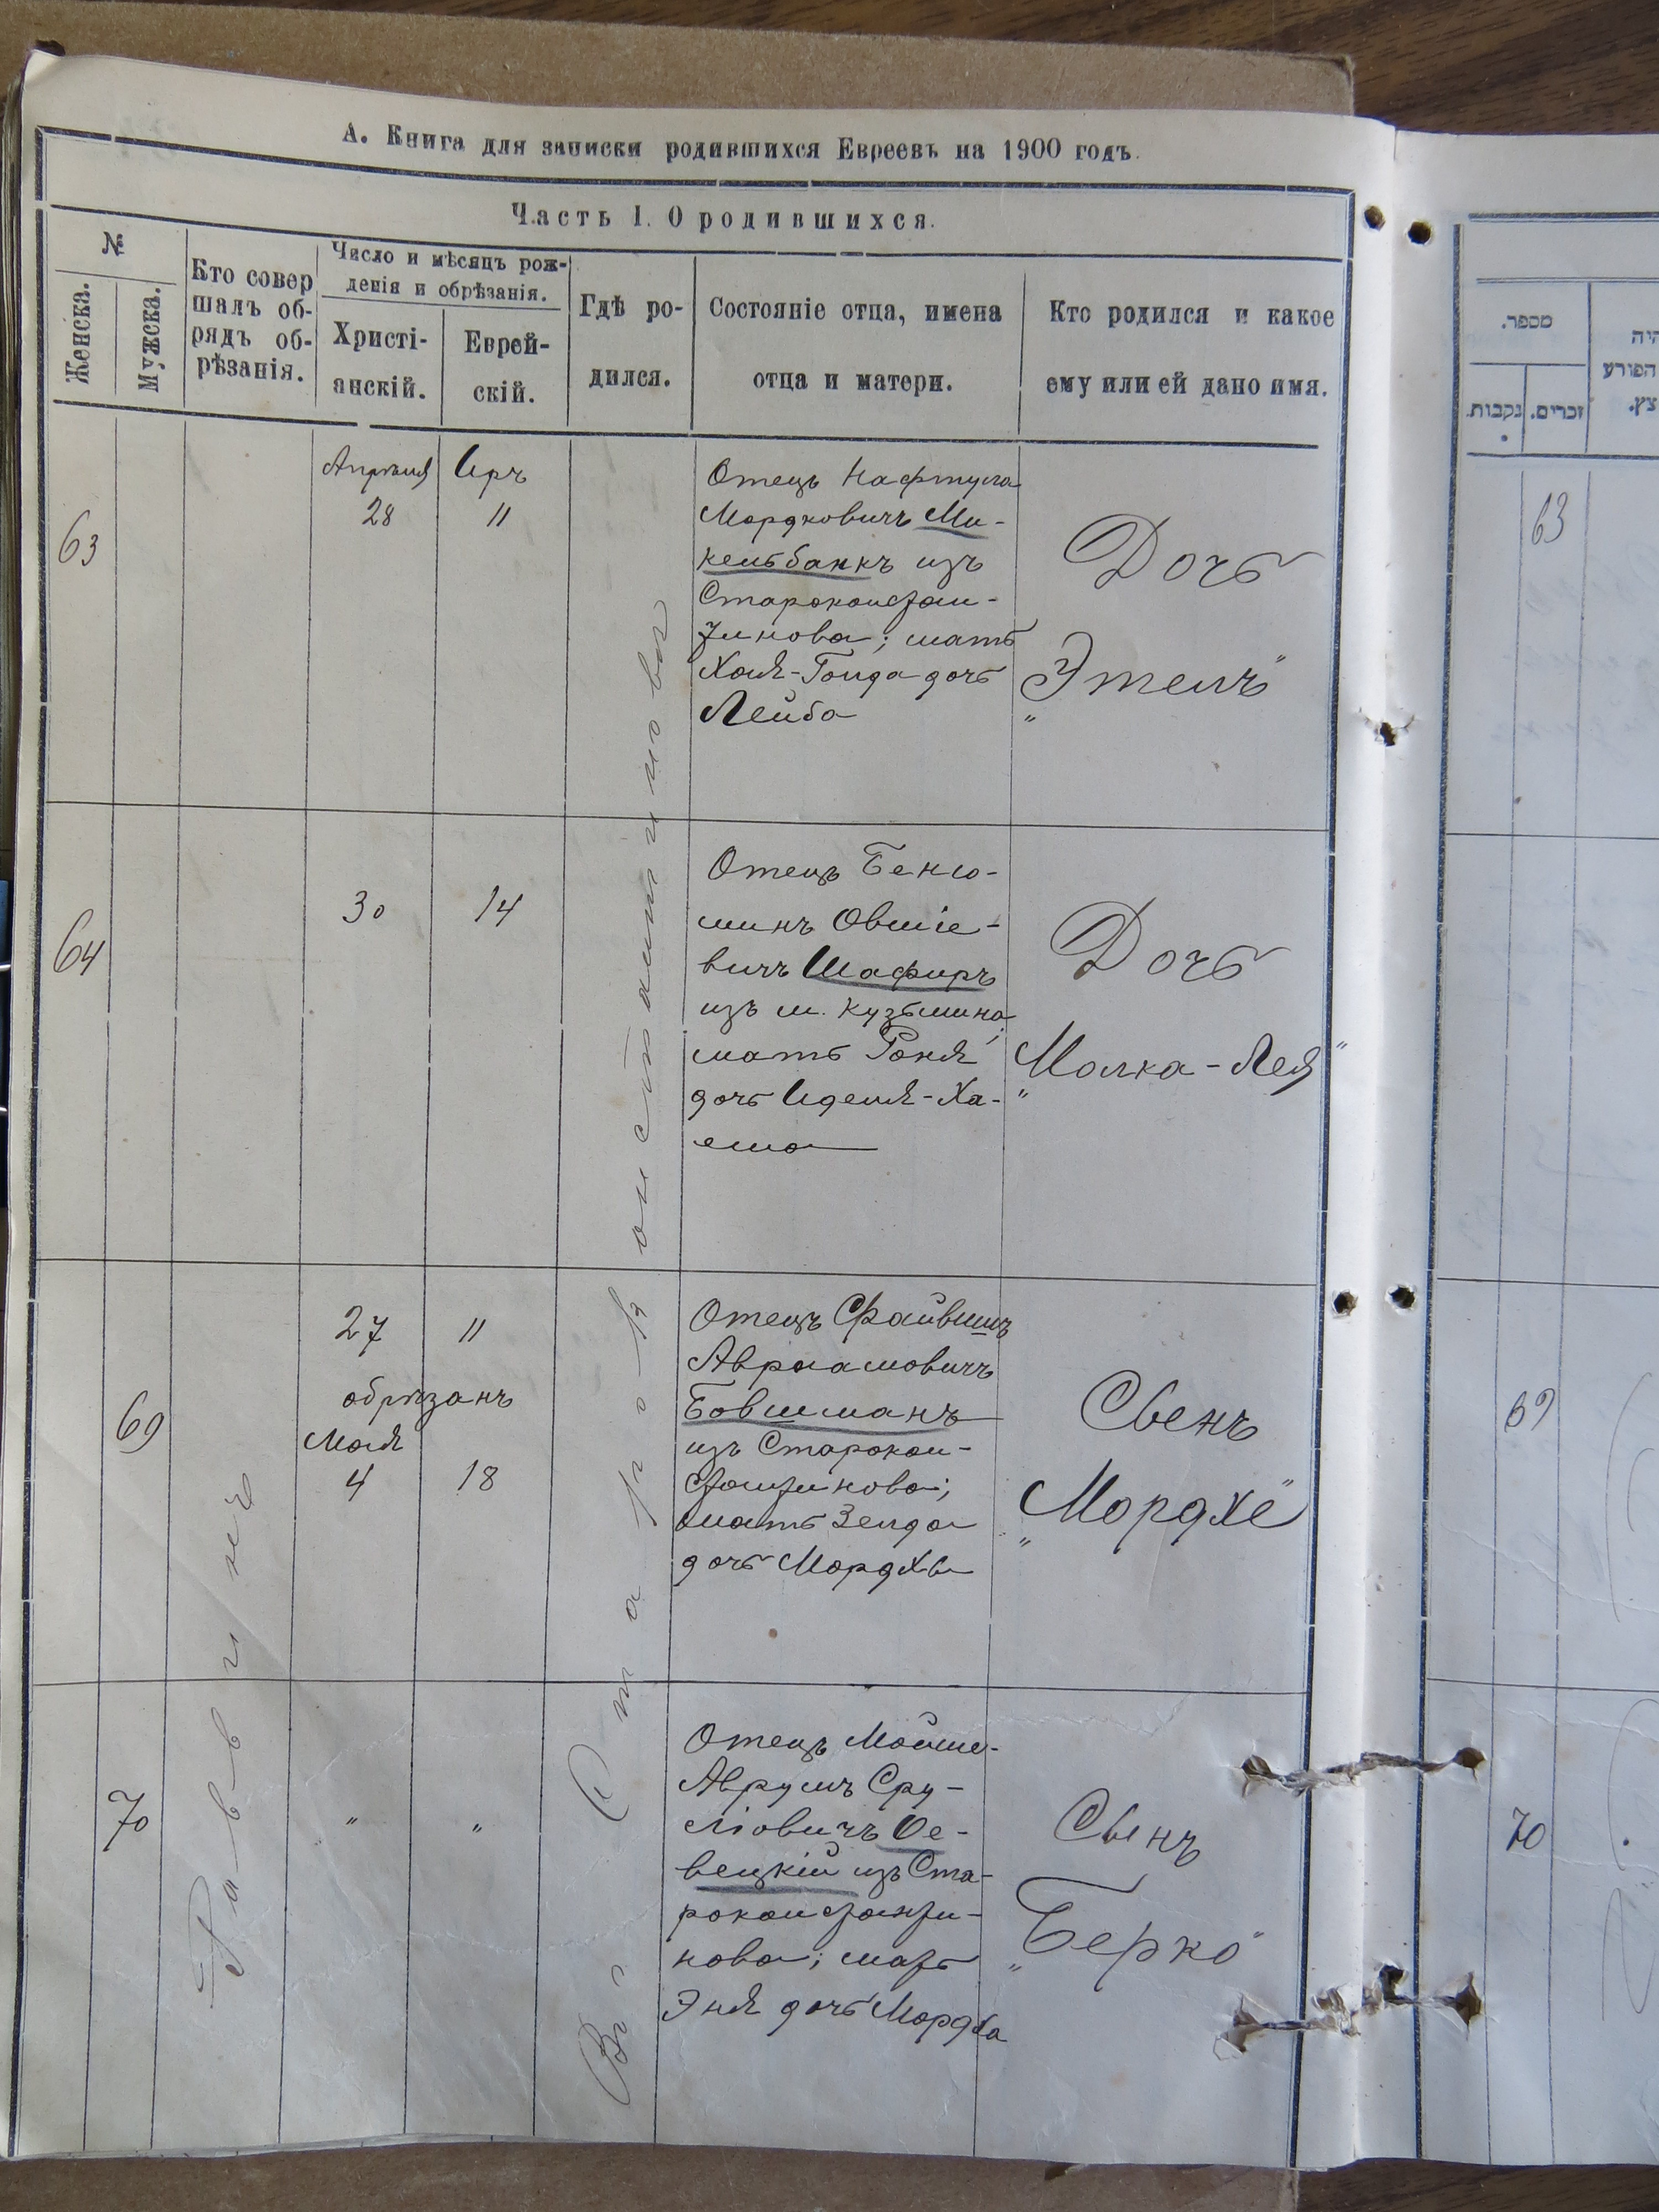 А. Книга для записки родившихся Евреевъ на 1900 годъ.
Часть I. О родившихся.
№
Женска.
Мужска.
Кто совер
шалъ об-
рядъ об-
рѣзанія.
Число и мѣсяцъ рож-
денія и обрѣзанія.
Христі-
анскій.
Еврей-
скій.
Гдѣ ро-
дился.
Состояніе отца, имена
отца и матери.
Кто родился и какое
ему или ей дано имя.
Раввинъ
Въ Староконстантиновѣ
63
Апрѣля
28
Иръ
11
Отецъ Нафтула
Мордковичъ Ми-
кельбанкъ изъ
Староконстан-
тинова; мать
Хая-Голда дочь
Лейба
Дочь
"Этель"
64
30
14
Отецъ Беню-
минъ Овшіе-
вичъ Шафиръ
изъ м. Кузьмина;
мать Рокля
дочь Иделя-Ха-
има
Дочь
"Малка-Лея"
69
27
11
обрѣзанъ
Мая
4
18
Отецъ Файвишъ
Авраамовичъ
Бовшманъ
изъ Старокон-
стантинова;
мать Зелда
дочь Мордхи
Сынъ
"Мордхе"
70
"
"
Отецъ Мойше-
Аврумъ Сру-
ліовичъ Ое-
вецкій изъ Ста-
роконстанти-
нова; мать
Эня дочь Мордха
Сынъ
"Берко"
מספר.
נקבות.
זכרים.
היה
הפורע
63
69
70